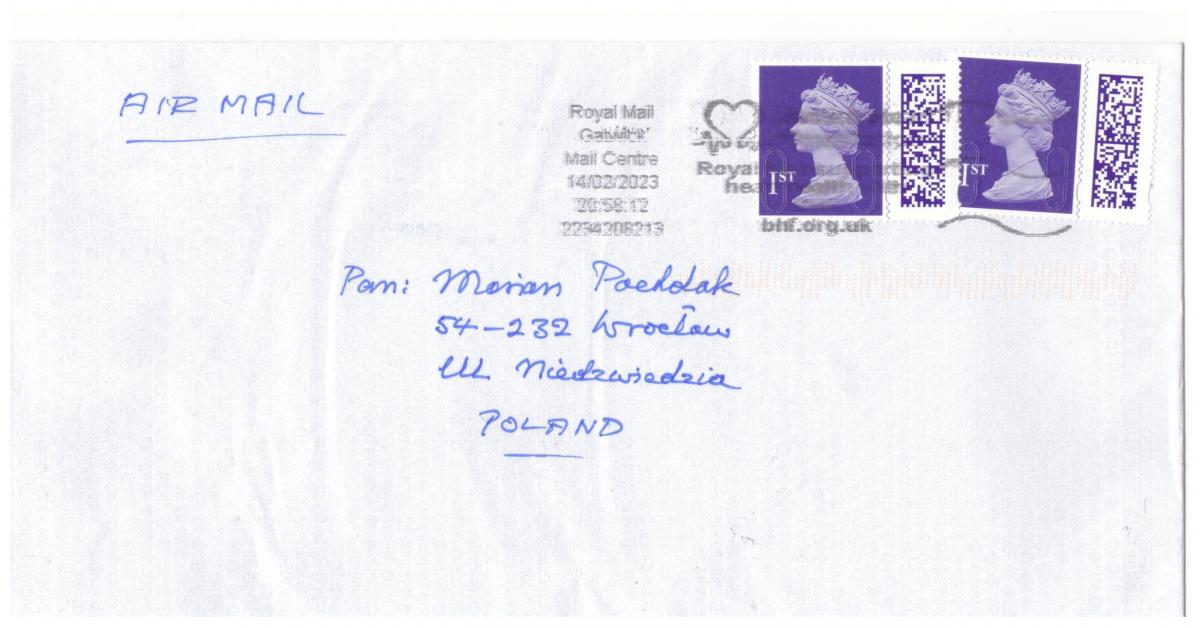 AIR MAIL
Royal Mail
Gatwick
Mail Centre
14/02/2023
20:58:12
Royal
bhf.org.uk
1ST
1ST
Pan: Marian
54-232 Wrocław
Ul. Niedzwiedzia
POLAND